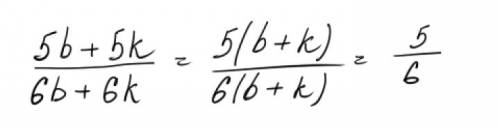 (5b+5k)/(6b+6k) = 5(b+k)/6(b+k) = 5/6